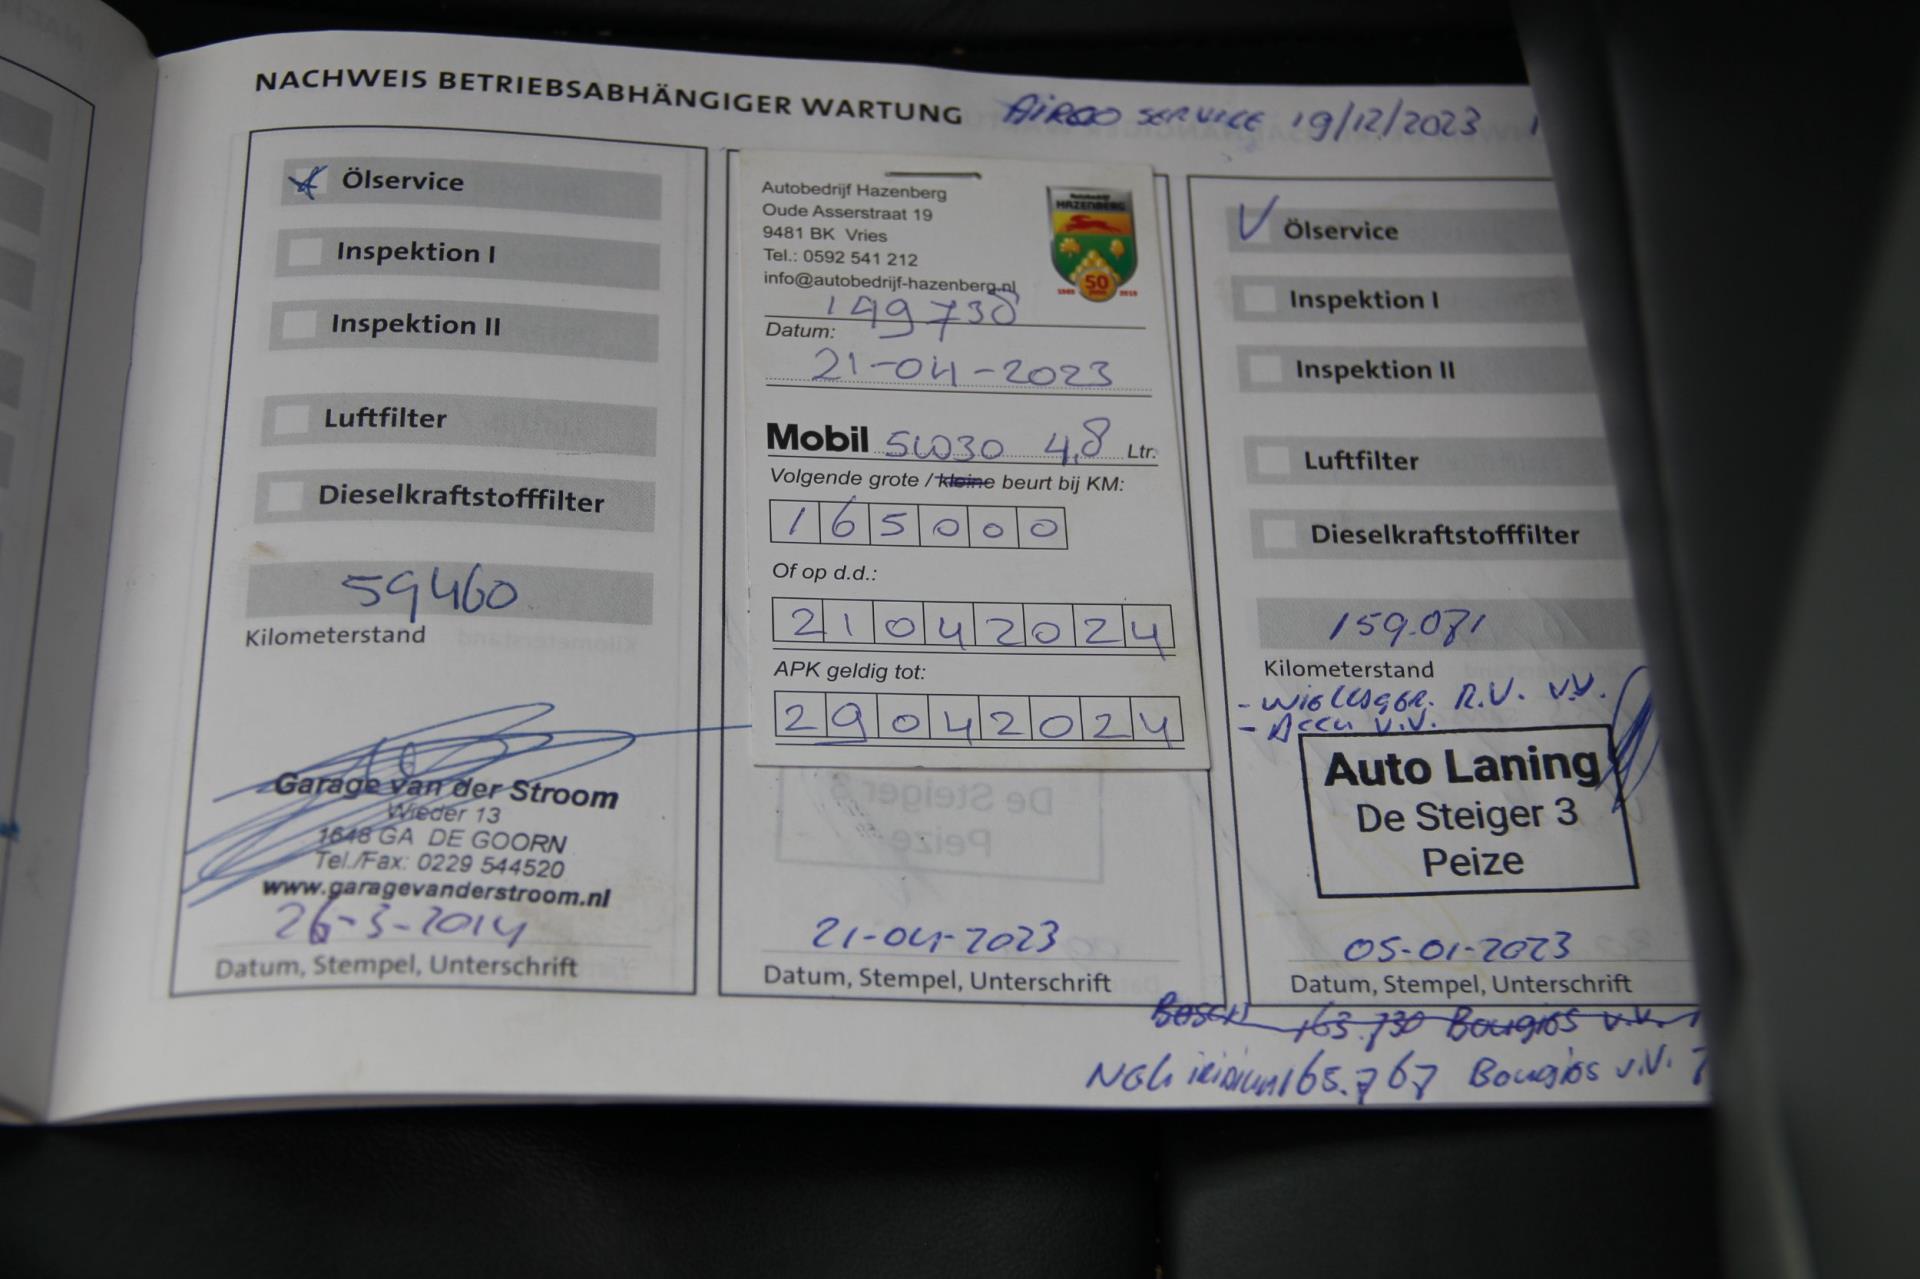 NACHWEIS BETRIEBSABHÄNGIGER WARTUNG
AIRCO SERVICE 19/12/2023
Ölservice
Inspektion I
Inspektion II
Luftfilter
Dieselkraftstofffilter
59460
Kilometerstand
Garage van der Stroom
Wieder 13
1648 GA DE GOORN
Tel./Fax: 0229 544520
www.garagevanderstroom.nl
26-3-2014
Datum, Stempel, Unterschrift
Autobedrijf Hazenberg
Oude Asserstraat 19
9481 BK Vries
Tel.: 0592 541 212
info@autobedrijf-hazenberg.nl
HAZENBERG
50
149738
Datum:
21-04-2023
Mobil 5W30 4,8 Ltr.
Volgende grote / kleine beurt bij KM:
165000
Of op d.d.:
21042024
APK geldig tot:
29042024
21-04-2023
Datum, Stempel, Unterschrift
Ölservice
Inspektion I
Inspektion II
Luftfilter
Dieselkraftstofffilter
159.071
Kilometerstand
R.V. v.v.
- Accu v.v.
Auto Laning
De Steiger 3
Peize
05-01-2023
Datum, Stempel, Unterschrift
Bosch 163.730 Bougies v.v.
iridium 165.767 Bougies v.v.